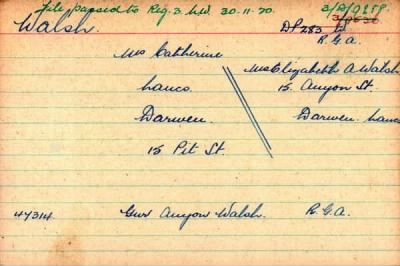 File passed to Reg. 3. N.W. 30.11.20.
3/A/0859.
Walsh.
DP 283
R.G.A.
Mrs Catherine
Lancs.
Darwen.
15 Pit St.
Mrs Elizabeth A Walsh
15. Anyon St.
Darwen. Lancs
47314
Gnr Anyon Walsh.
R.G.A.